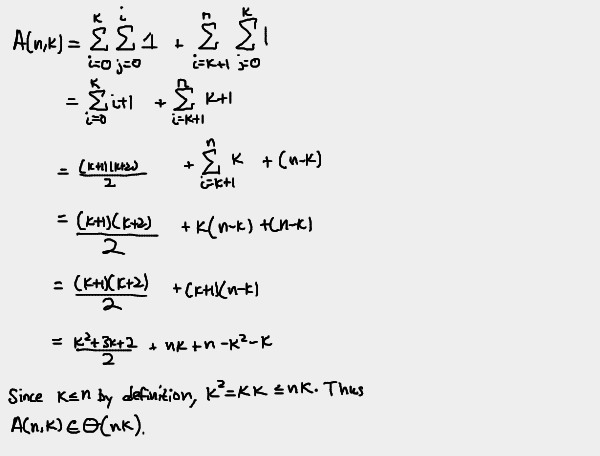 A(n,k) = \sum_{i=0}^{k} \sum_{j=0}^{i} 1 + \sum_{i=k+1}^{n} \sum_{j=0}^{k} 1
= \sum_{i=0}^{k} i+1 + \sum_{i=k+1}^{n} k+1
= \frac{(k+1)(k+2)}{2} + \sum_{i=k+1}^{n} k + (n-k)
= \frac{(k+1)(k+2)}{2} + k(n-k) + (n-k)
= \frac{(k+1)(k+2)}{2} + (k+1)(n-k)
= \frac{k^2+3k+2}{2} + nk + n - k^2 - k
Since k ≤ n by definition, k^2 = kk ≤ nk. Thus
A(n,k) ∈ Θ(nk).